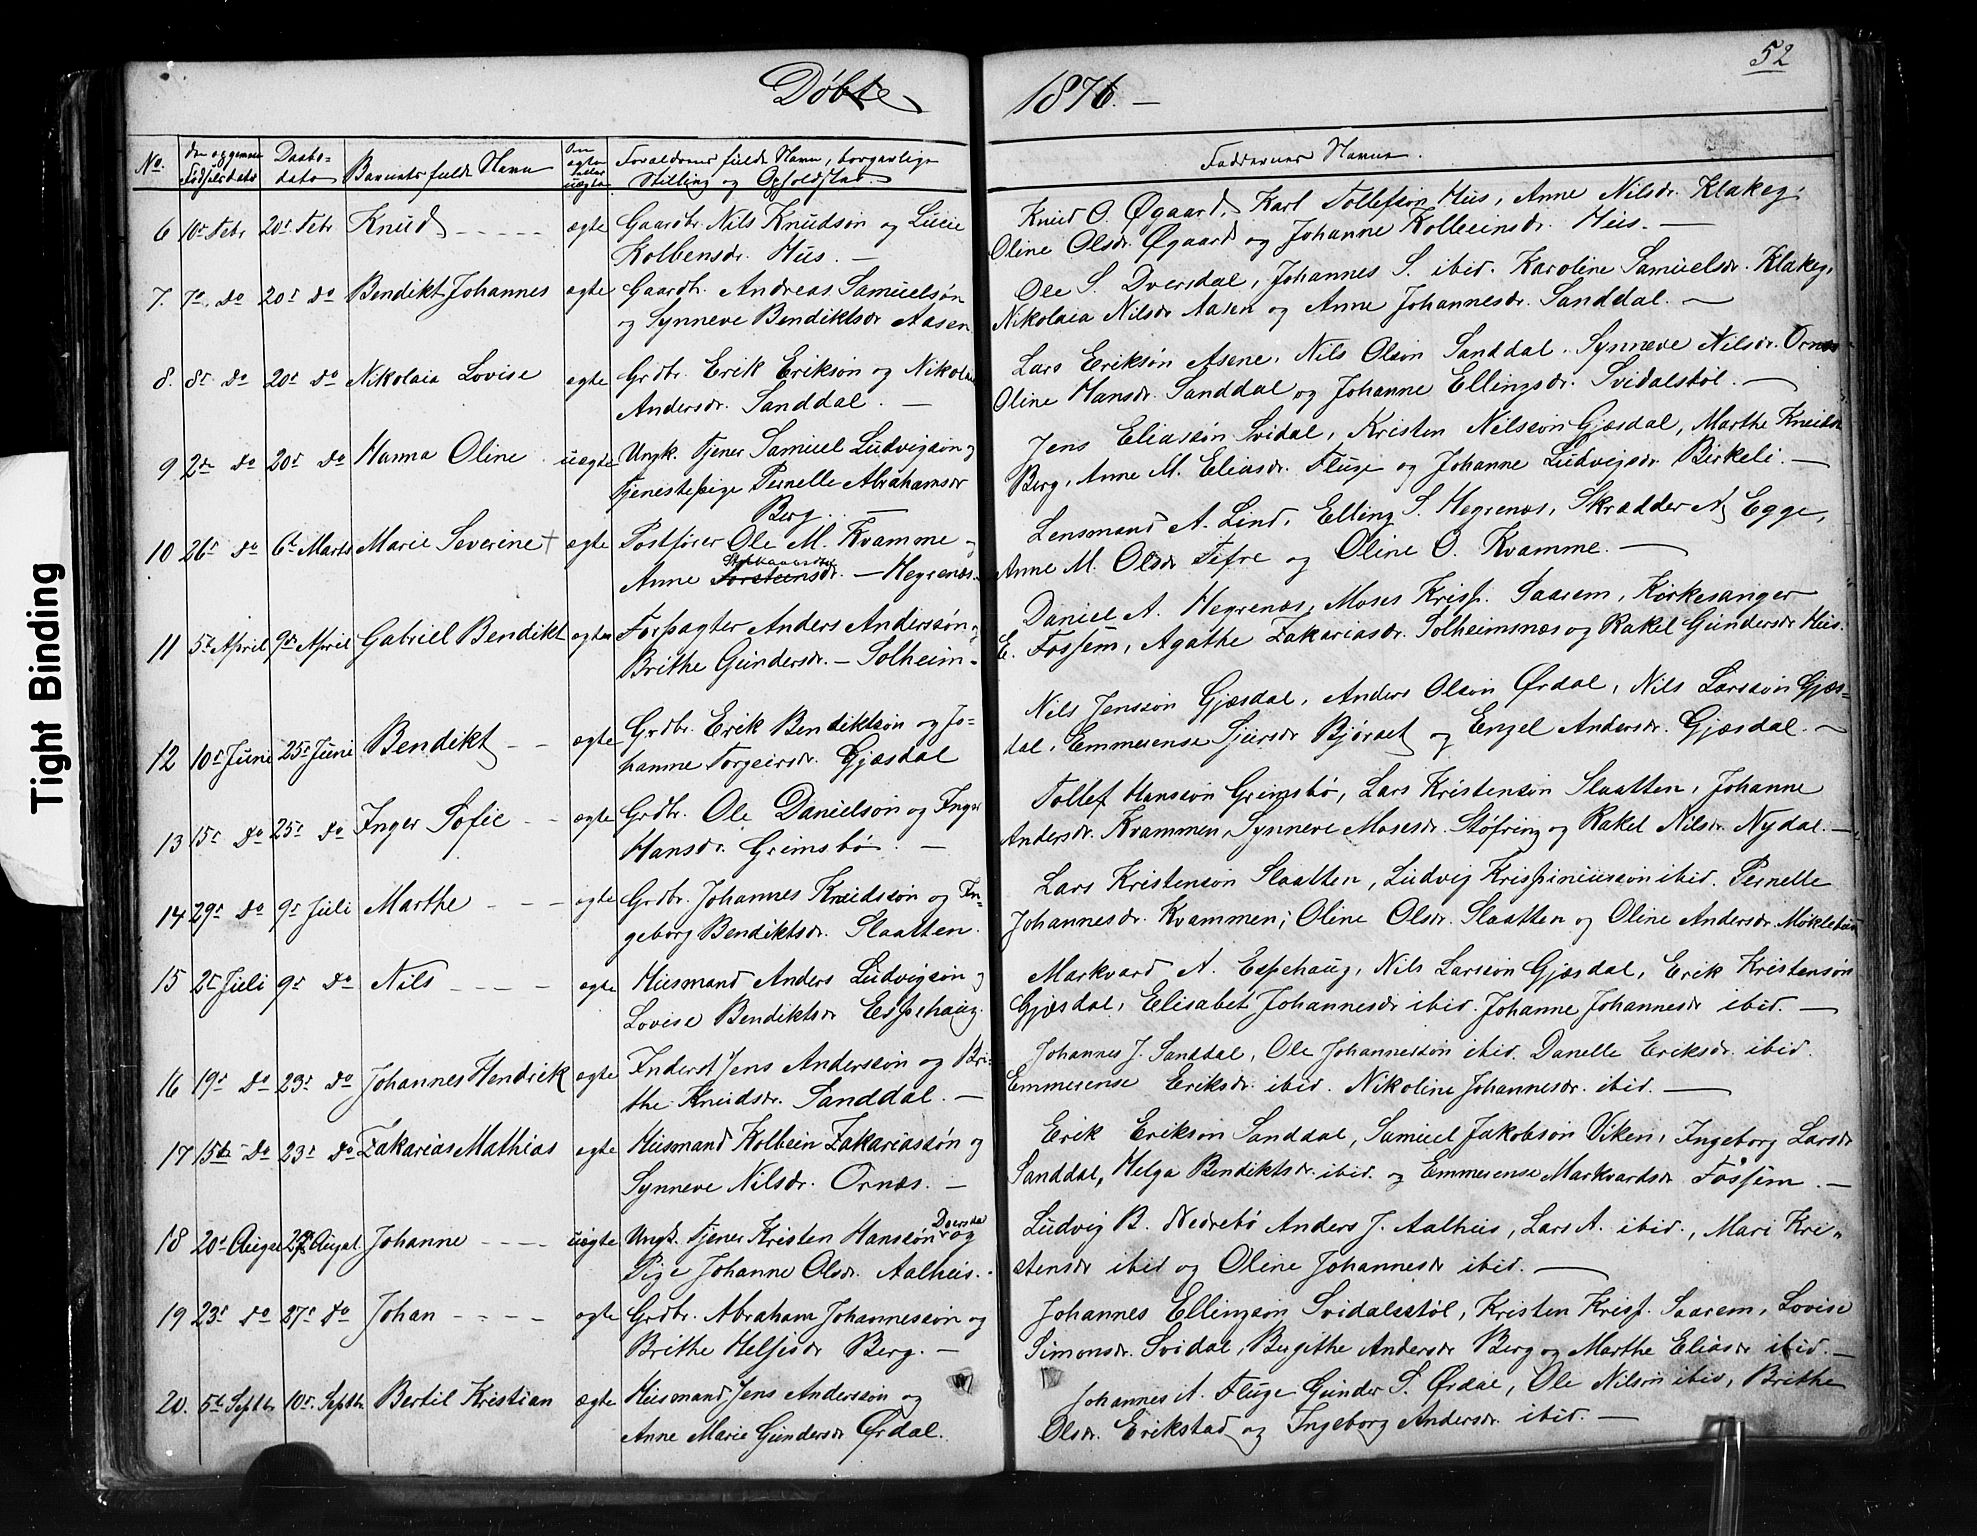 52
Døbte
1876. —
No.
Den og gamm Fødselsdato
Daabs-dato
Barnets fulde Navn
Om ægte eller uægte
Forældrenes fulde Navn, borgerlige
Stilling og Opholdsted.
Faddernes Navne.
6 10de Febr 20de Febr Knud - - - - - ægte Gaardbr. Nils Knudsøn og Lucie
Kolbensdr. Hus. —
Knud O. Øgaard, Karl Tollefsøn Hus, Anne Nilsdr. Klakeg,
Oline Olsdr. Øgaard og Johanne Kolbeinsdr. Hus. —
7. 7de do 20de do Bendikt Johannes ægte Gaardbr. Andreas Samuelsøn
og Synneve Bendiktsdr Aasen
Ole S. Dversdal, Johannes S. ibid. Karoline Samuelsdr. Klakeg,
Nikolaia Nilsdr Aasen og Anne Johannesdr. Sanddal. —
8. 8de do 20de do Nikolaia Lovise ægte Grdbr. Erik Eriksøn og Nikolai
Andersdr. Sanddal. —
Lars Eriksøn Asene, Nils Olsøn Sanddal. Synneve Nilsdr. Ornæs
Oline Hansdr. Sanddal og Johanne Ellingsdr. Svidalstøl. —
9 2de do 20de do Hanna Oline uægte Ungk. Tjener Samuel Ludvigsøn og
Tjenestepige Pernelle Abrahamsdr
Berg. —
Jens Eliassøn Svidal, Kristen Nilssøn Gjesdal, Marthe Knudsdr
Berg, Anne M. Eliasdr. Fluge og Johanne Ludvigsdr. Birkeli. —
10 26de do 6te Marts Marie Severine + ægte Postfører Ole M. Kvamme og
Anne Torsteinsdr. — Hegrenæs.
Lensmand A. Lind, Elling S. Hegrenæs, Skrædder A. Egge,
Anne M. Olsdr Tefre og Oline O. Kvamme. —
11 5te April 9de April Gabriel Bendikt ægte Forpagter Anders Anderssøn og
Brithe Gundersdr. — Solheim.
Daniel A. Hegrenæs, Moses Krisp. Saarem, Kirkesanger
E. Fossem, Agathe Zakariasdr. Solheimsnæs og Rakel Gundersdr Hus.
12 10de Juni 25de Juni Bendikt - - ægte Grdbr. Erik Bendiktsøn og Jo-
hanne Torgeirsdr. Gjæsdal
Nils Jenssøn Gjæsdal, Anders Olsøn Ørdal, Nils Larssøn Gjæs-
dal, Emmerense Sjursdr Bjøraet og Engel Andersdr. Gjæsdal. —
13 15de do 25de do Inger Sofie - - ægte Grdbr. Ole Danielsøn og Inger
Hansdr. Grimsbø. —
Tollef Hanssøn Grimsbø, Lars Kristensøn Slaatten, Johanne
Andersdr. Kvammen, Synneve Mosesdr. Støfring og Rakel Nilsdr. Nydal. —
14 29de do 9de Juli Marthe - - - ægte Grdbr. Johannes Knudssøn og In-
geborg Bendiktsdr. Slaatten.
Lars Kristensøn Slaatten, Ludvig Krispiniussøn ibid. Pernelle
Johannesdr. Kvammen, Oline Olsdr. Slaatten og Oline Andersdr. Møklebust
15 2de Juli 9de do Nils - - - - ægte Husmand Anders Ludvigsøn og
Lovise Bendiktsdr Espehaug.
Markvard A. Espehaug, Nils Larssøn Gjæsdal, Erik Kristensøn
Gjæsdal, Elisabet Johannesdr ibid. Johanne Johannesdr ibid. —
16 19de do 23de do Johannes Hendrik ægte Inderst Jens Anderssøn og Bri-
the Knudsdr. Sanddal. —
Johannes J. Sanddal, Ole Johannessøn ibid. Danelle Eriksdr. ibid.
Emmerense Eriksdr. ibid. Nikoline Johannesdr. ibid. —
17 15de do 23de do Zakarias Mathias ægte Husmand Kolbein Zakariassøn og
Synneve Nilsdr. Ornæs. —
Erik Eriksøn Sanddal, Samuel Jakobsøn Viken, Ingeborg Larsdr
Sanddal, Helga Bendiktsdr. ibid. og Emmerense Markvardsdr Fossem. —
18 20de August 27de August Johanne - - - - uægte Ungk. Tjener Kristen Hanssøn Dversdal og
Pige Johanne Olsdr. Aalhus.
Ludvig B. Nedrebø Anders J. Aalhus, Lars A. ibid., Mari Kri-
stensdr ibid og Oline Johannesdr ibid. —
19 23de do 27de do Johan - - - - ægte Grdbr. Abraham Johannessøn og
Brithe Heljesdr Berg. —
Johannes Ellingsøn Svidalsstøl, Kristen Krisp. Saarem, Lovise
Simonsdr. Svidal, Bergithe Andersdr Berg og Marthe Eliasdr ibid. —
20. 5te Septbr 10de Septbr Bertil Kristian ægte Husmand Jens Anderssøn og
Anne Marie Gundersdr Ørdal.
Johannes A. Fluge Gunder S. Ørdal, Ole Nilsøn ibid, Brithe
Olsdr. Erikstad og Ingeborg Andersdr. ibid. —
Tight Binding